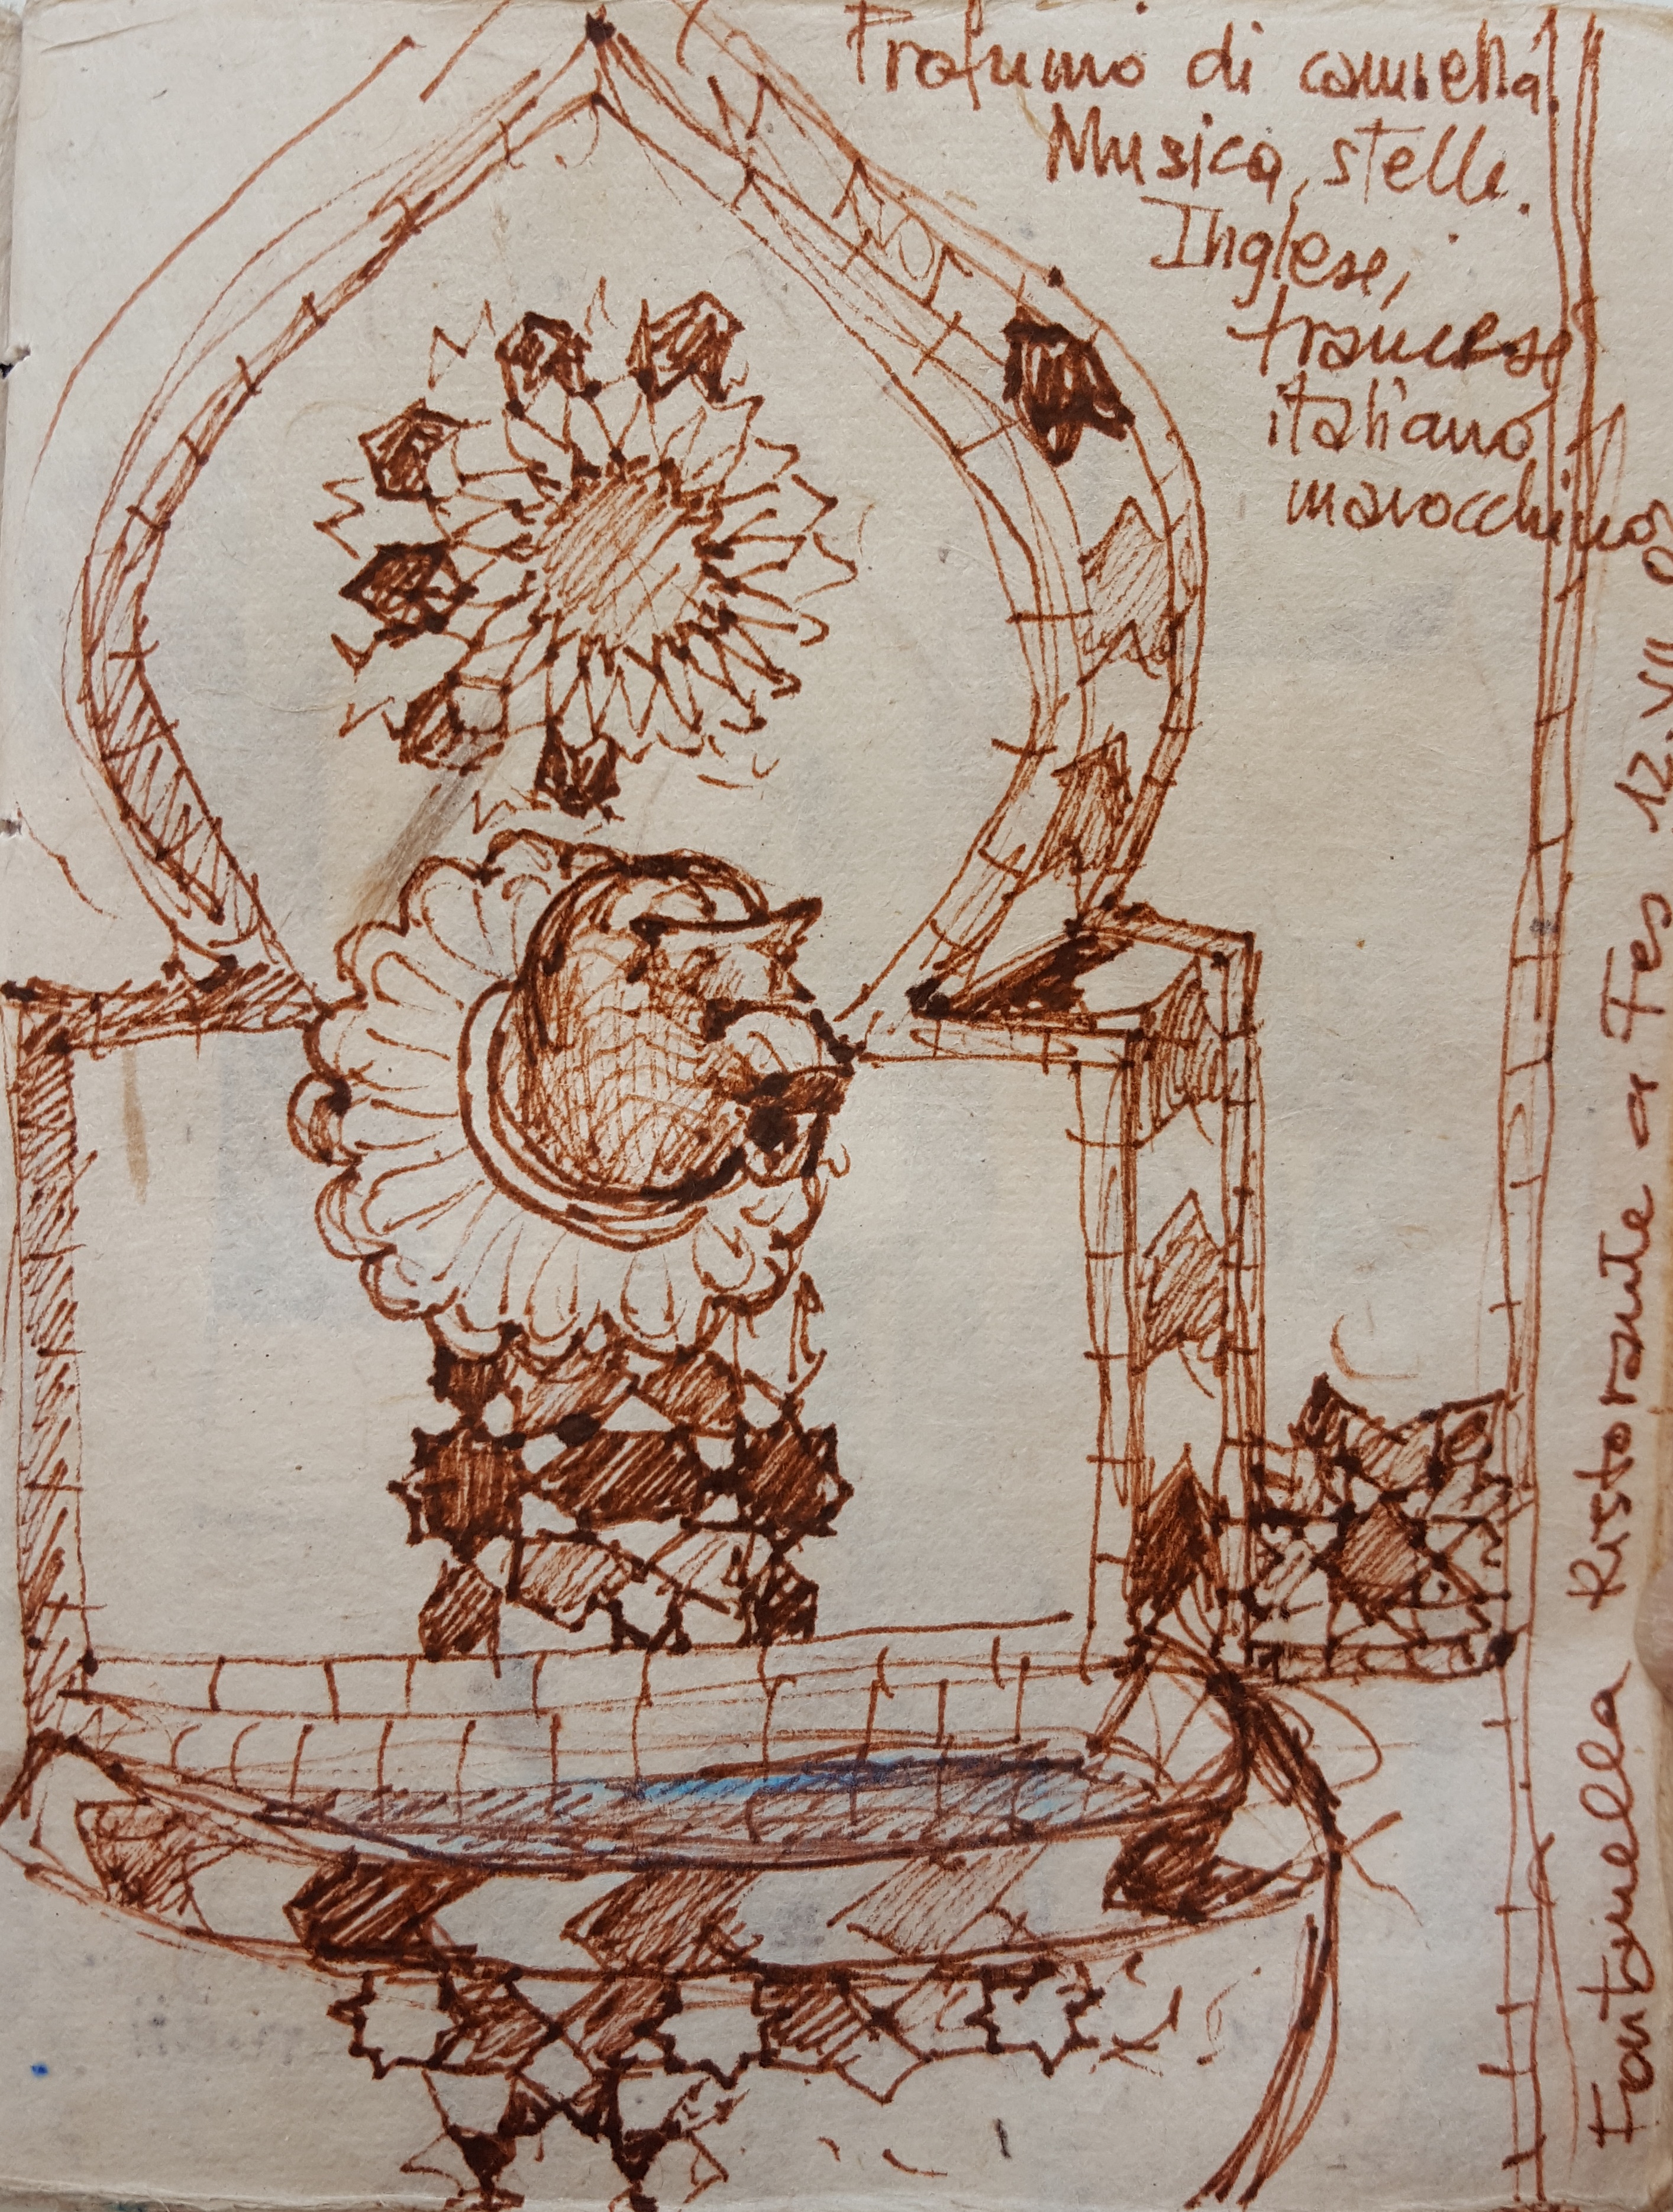 Profumo di cannella.
Musica, stelle.
Inglese,
francese
italiano
marocchino
Fontanella Ristorante a Fes 12. VII